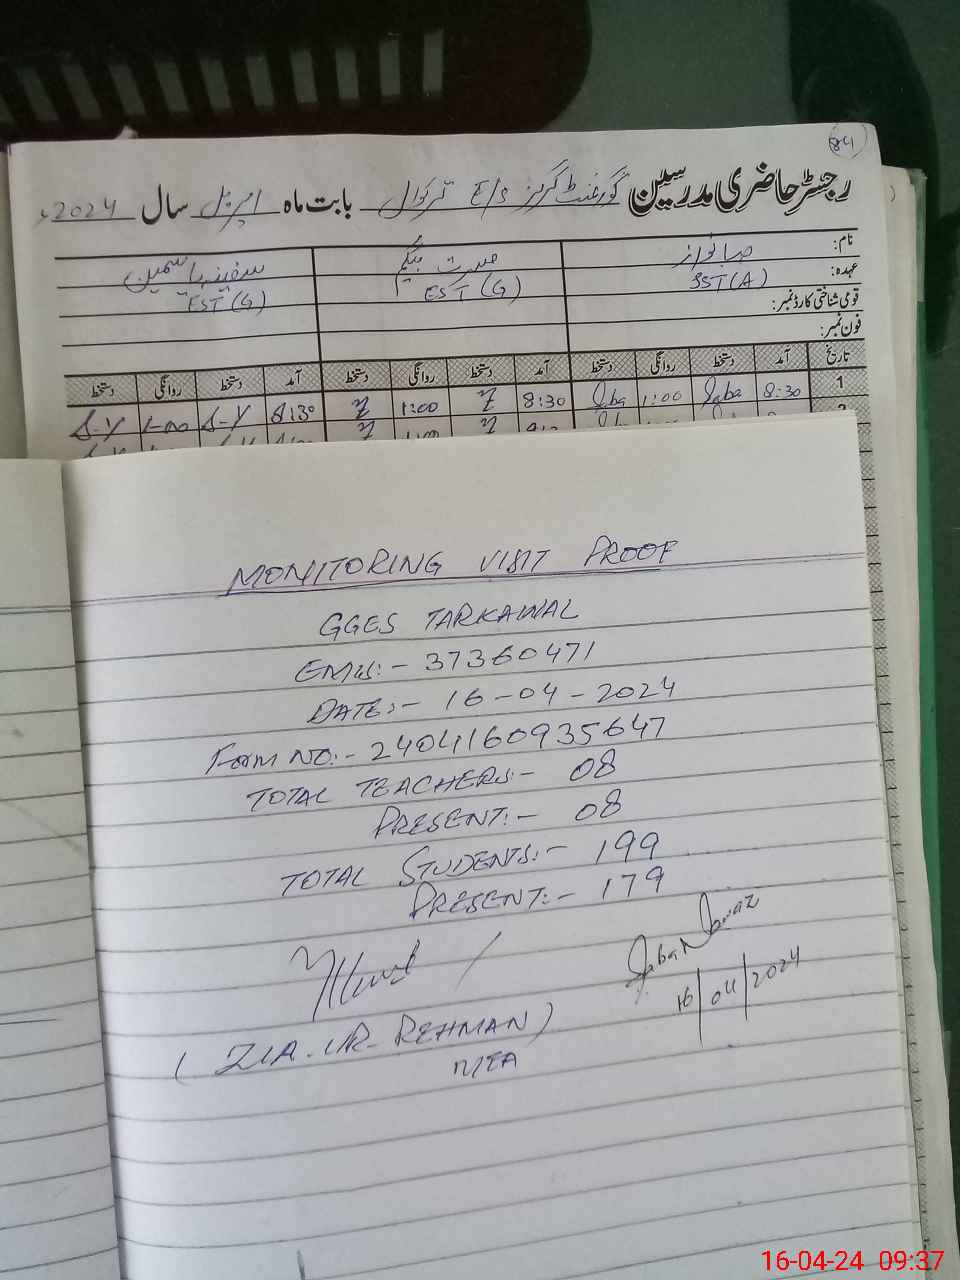 84
رجسٹر حاضری مدرسین گورنمنٹ گرلز E/S ترکوال بابت ماہ اپریل سال 2024ء
نام: صبا نواز مسرت بیگم سفینہ یاسمین
عہدہ: SST(A) EST(G) EST(G)
قومی شناختی کارڈ نمبر:
فون نمبر:
تاریخ آمد دستخط روانگی دستخط آمد دستخط روانگی دستخط آمد دستخط روانگی دستخط
1 8:30 Saba 1:00 Saba 8:30 1:00 8:30 S-Y 1:00 S-Y
MONITORING VISIT PROOF
GGES TARKAWAL
EMIS:- 37360471
DATE:- 16-04-2024
Form NO:- 2404160935647
TOTAL TEACHERS:- 08
PRESENT:- 08
TOTAL STUDENTS:- 199
PRESENT:- 179
Saba Nawaz
16/04/2024
(ZIA-UR-REHMAN)
MEA
16-04-24 09:37